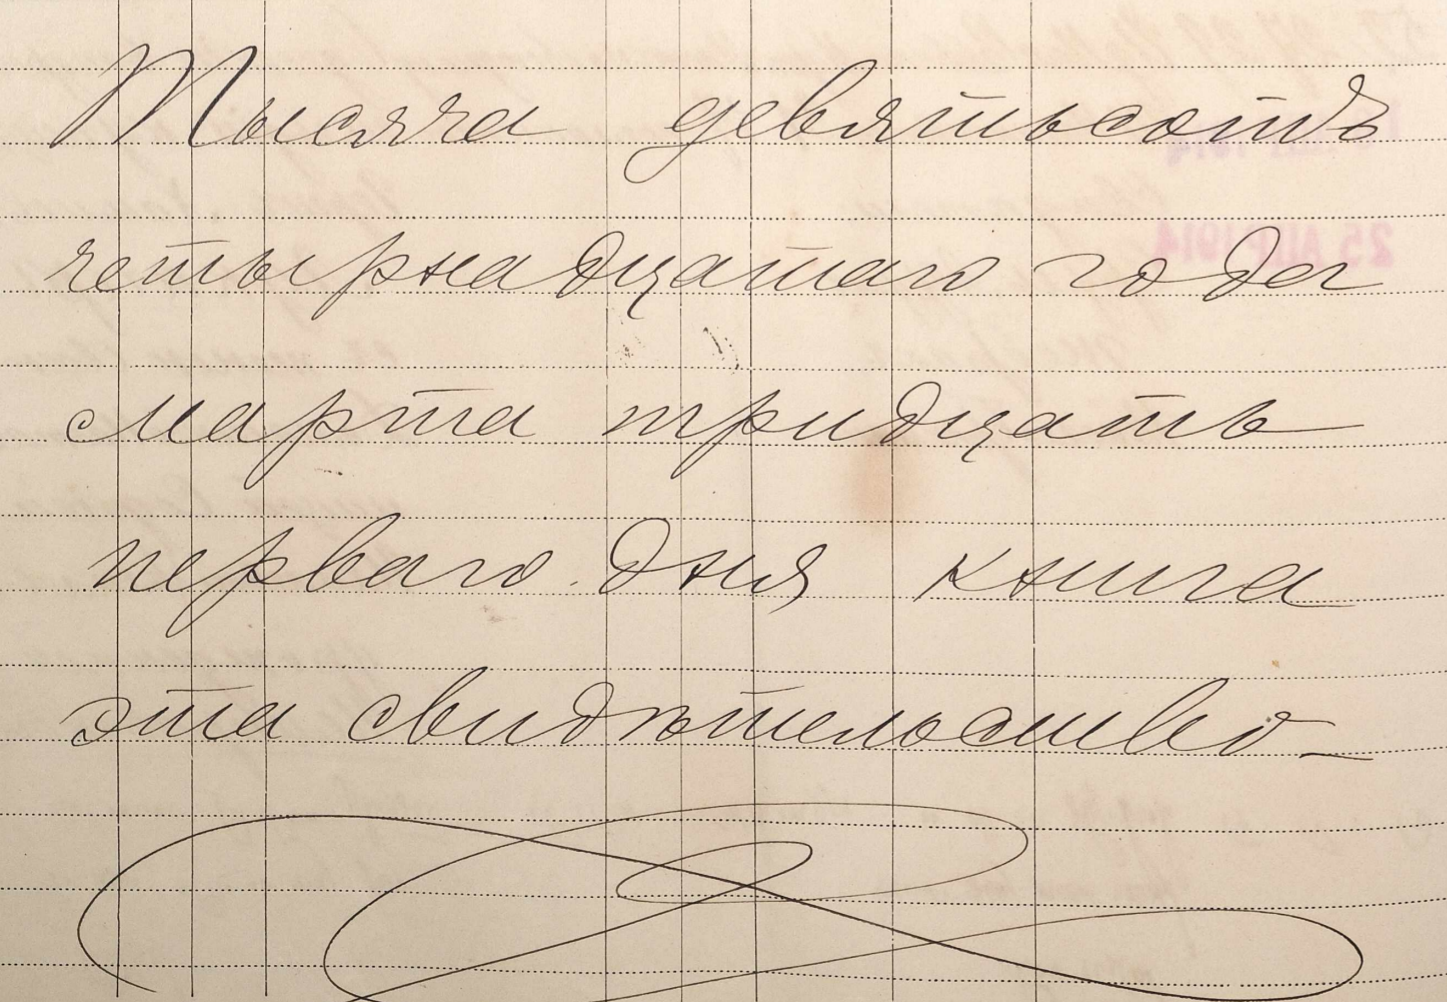 Тысяча девятьсотъ
четырнадцатаго года
марта тридцать
перваго дня книга
эта свидѣтельство-